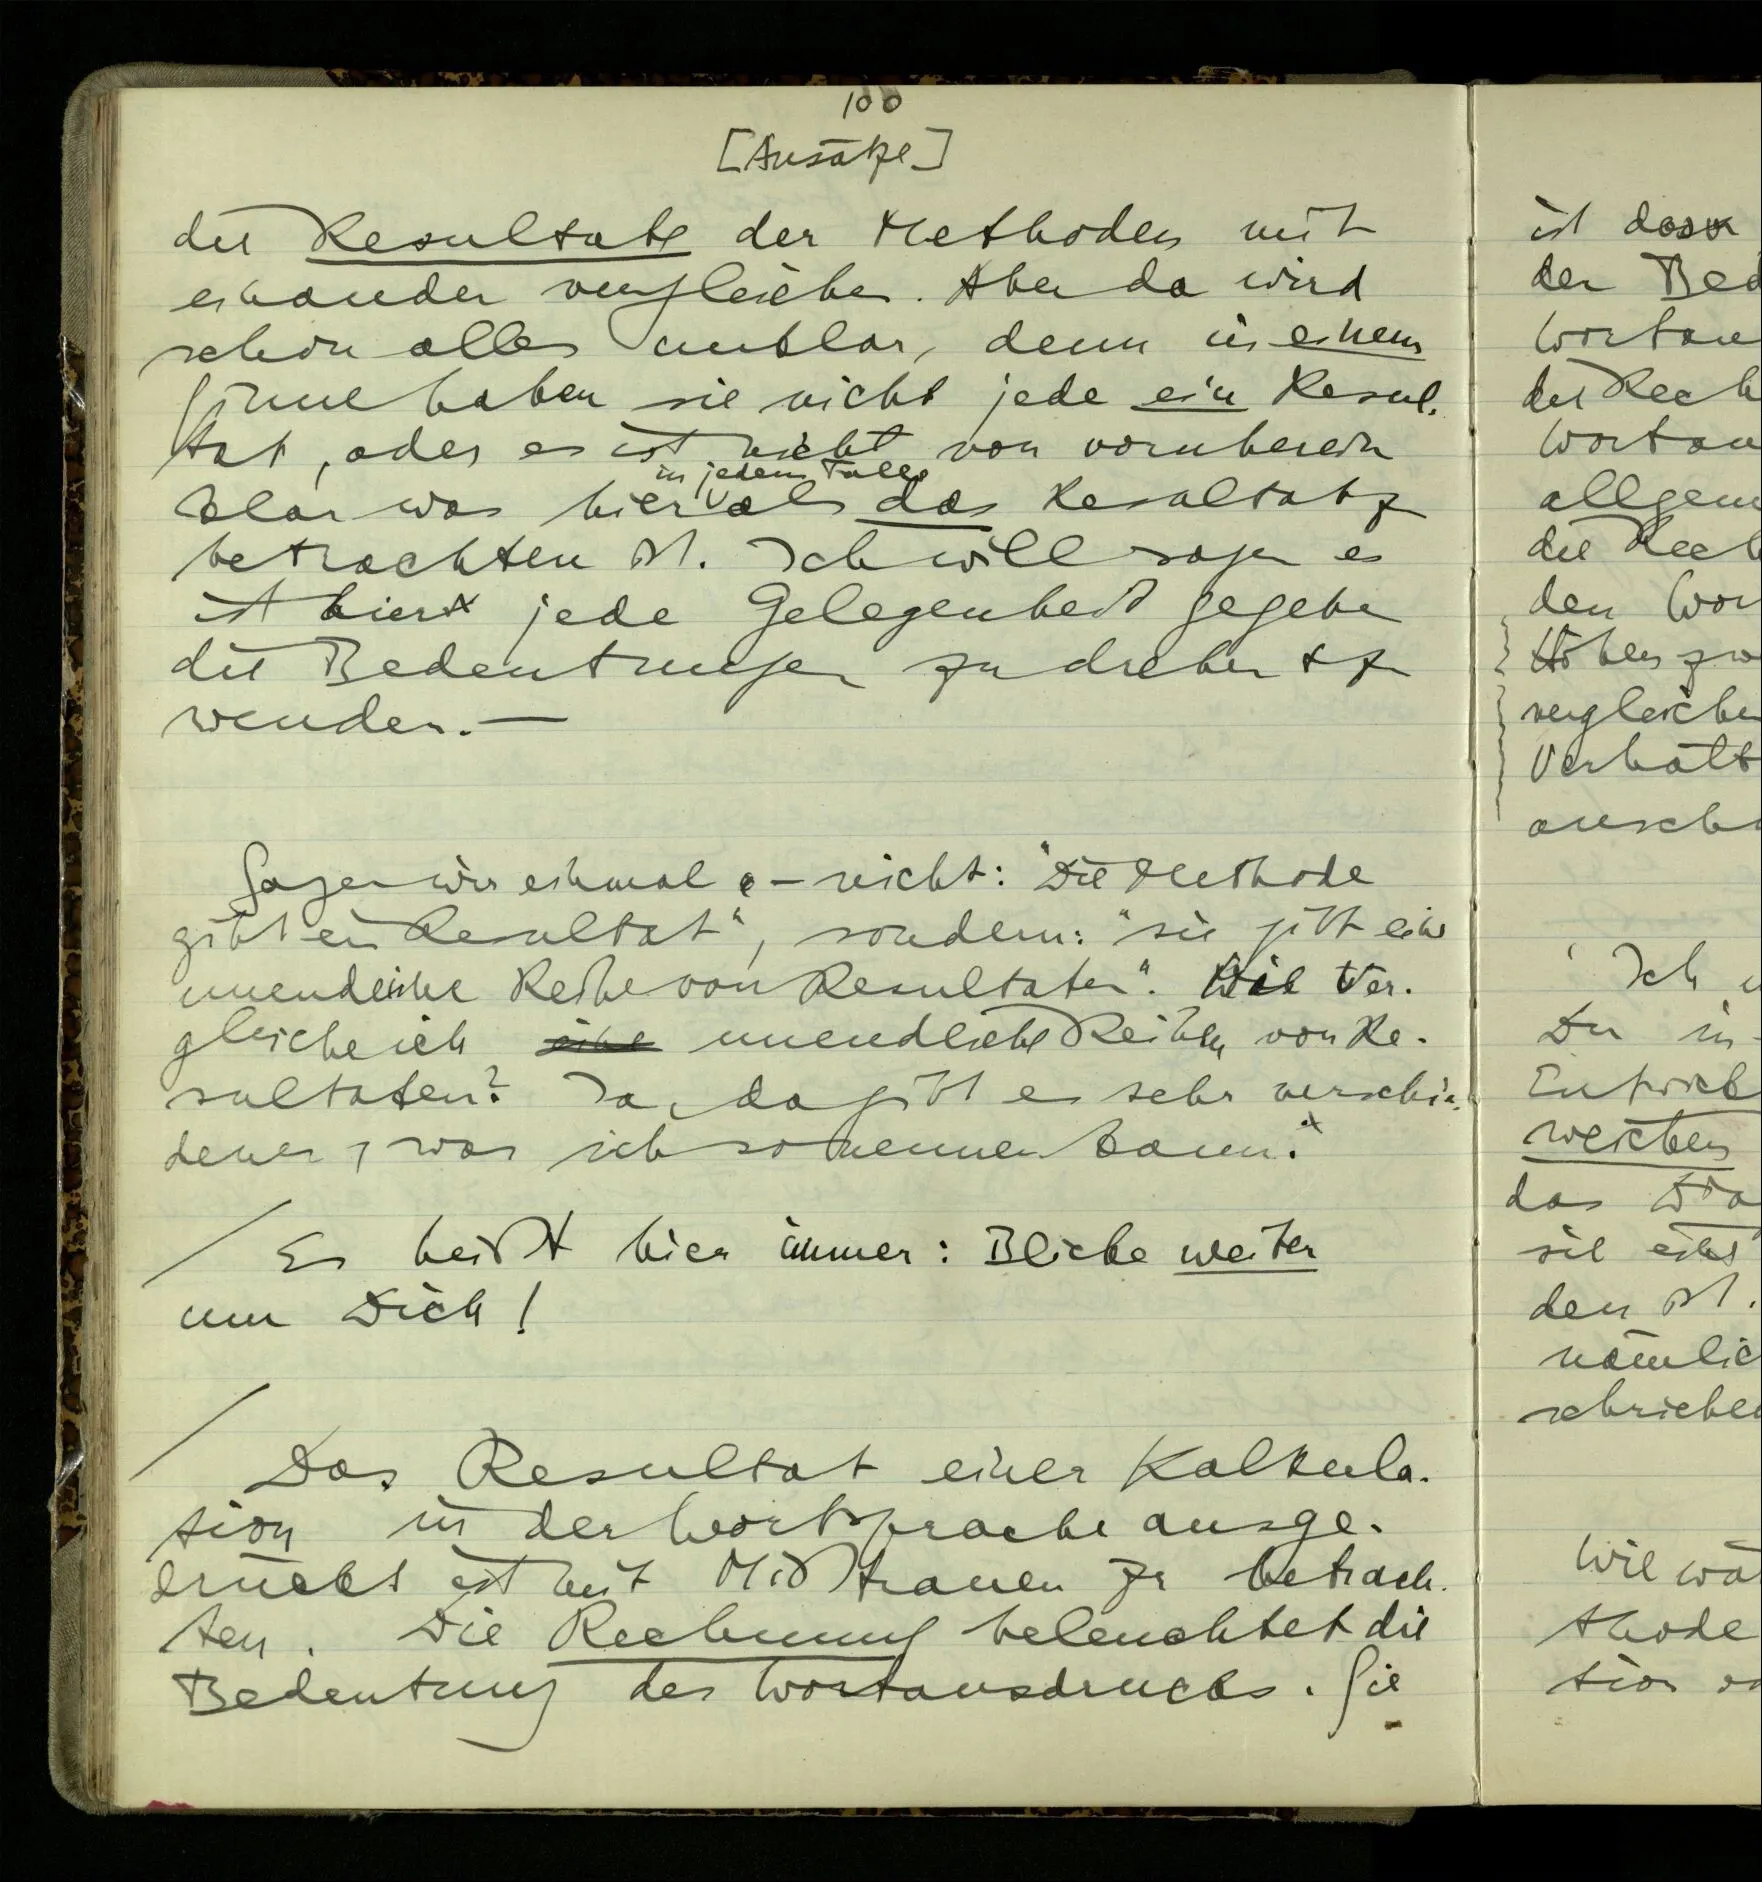 100
[Ansätze]
die Resultate der Methoden mit
einander vergleichen. Aber da wird
schon alles unklar, denn in einem
Sinne haben sie nicht jede ein Resul-
tat, oder es ist nicht von vornherein
in jedem Falle
klar was hier als das Resultat zu
betrachten ist. Ich will sagen es
ist hier jede Gelegenheit gegeben
die Bedeutungen zu drehen & zu
wenden. —
Sagen wir einmal – nicht: "Die Methode
gibt ein Resultat", sondern: "sie gibt eine
unendliche Reihe von Resultaten". Wie ver-
gleiche ich eine unendliche Reihen von Re-
sultaten? Ja, da gibt es sehr verschie-
denes, was ich so nennen kann.
/ Es heißt hier immer: Blicke weiter
um Dich!
/ Das Resultat einer Kalkula-
tion in der Wortsprache ausge-
drückt ist mit Mißtrauen zu betrach-
ten. Die Rechnung beleuchtet die
Bedeutung des Wortausdrucks. Sie
ist das
der Bed
Wortau
die Rech
Wortau
allgem
die Rech
den Wor
Höhen zw
vergleichen
Verhält
ansch
Ich
Du in
Entwick
welchem
das
sie eine
den ist.
nämlic
schrieben
Wie wä
thode
tion